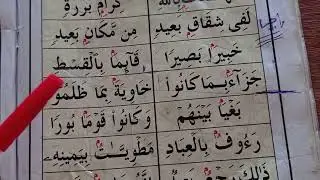 كِرَامٍۭ بَرَرَةٍ
لَفِي شِقَاقٍۭ بَعِيدٍ مِن مَّكَانٍۭ بَعِيدٍ
خَبِيرًۢا بَصِيرًا قَآئِمًۢا بِالْقِسْطِ
جَزَآءًۢ بِمَا كَانُوا خَاوِيَةًۢ بِمَا ظَلَمُوا
بَغْيًۢا بَيْنَهُمْ وَكَانُوا قَوْمًۢا بُورًا
رَءُوفٌۢ بِالْعِبَادِ مَطْوِيَّتٌۢ بِيَمِينِهِ